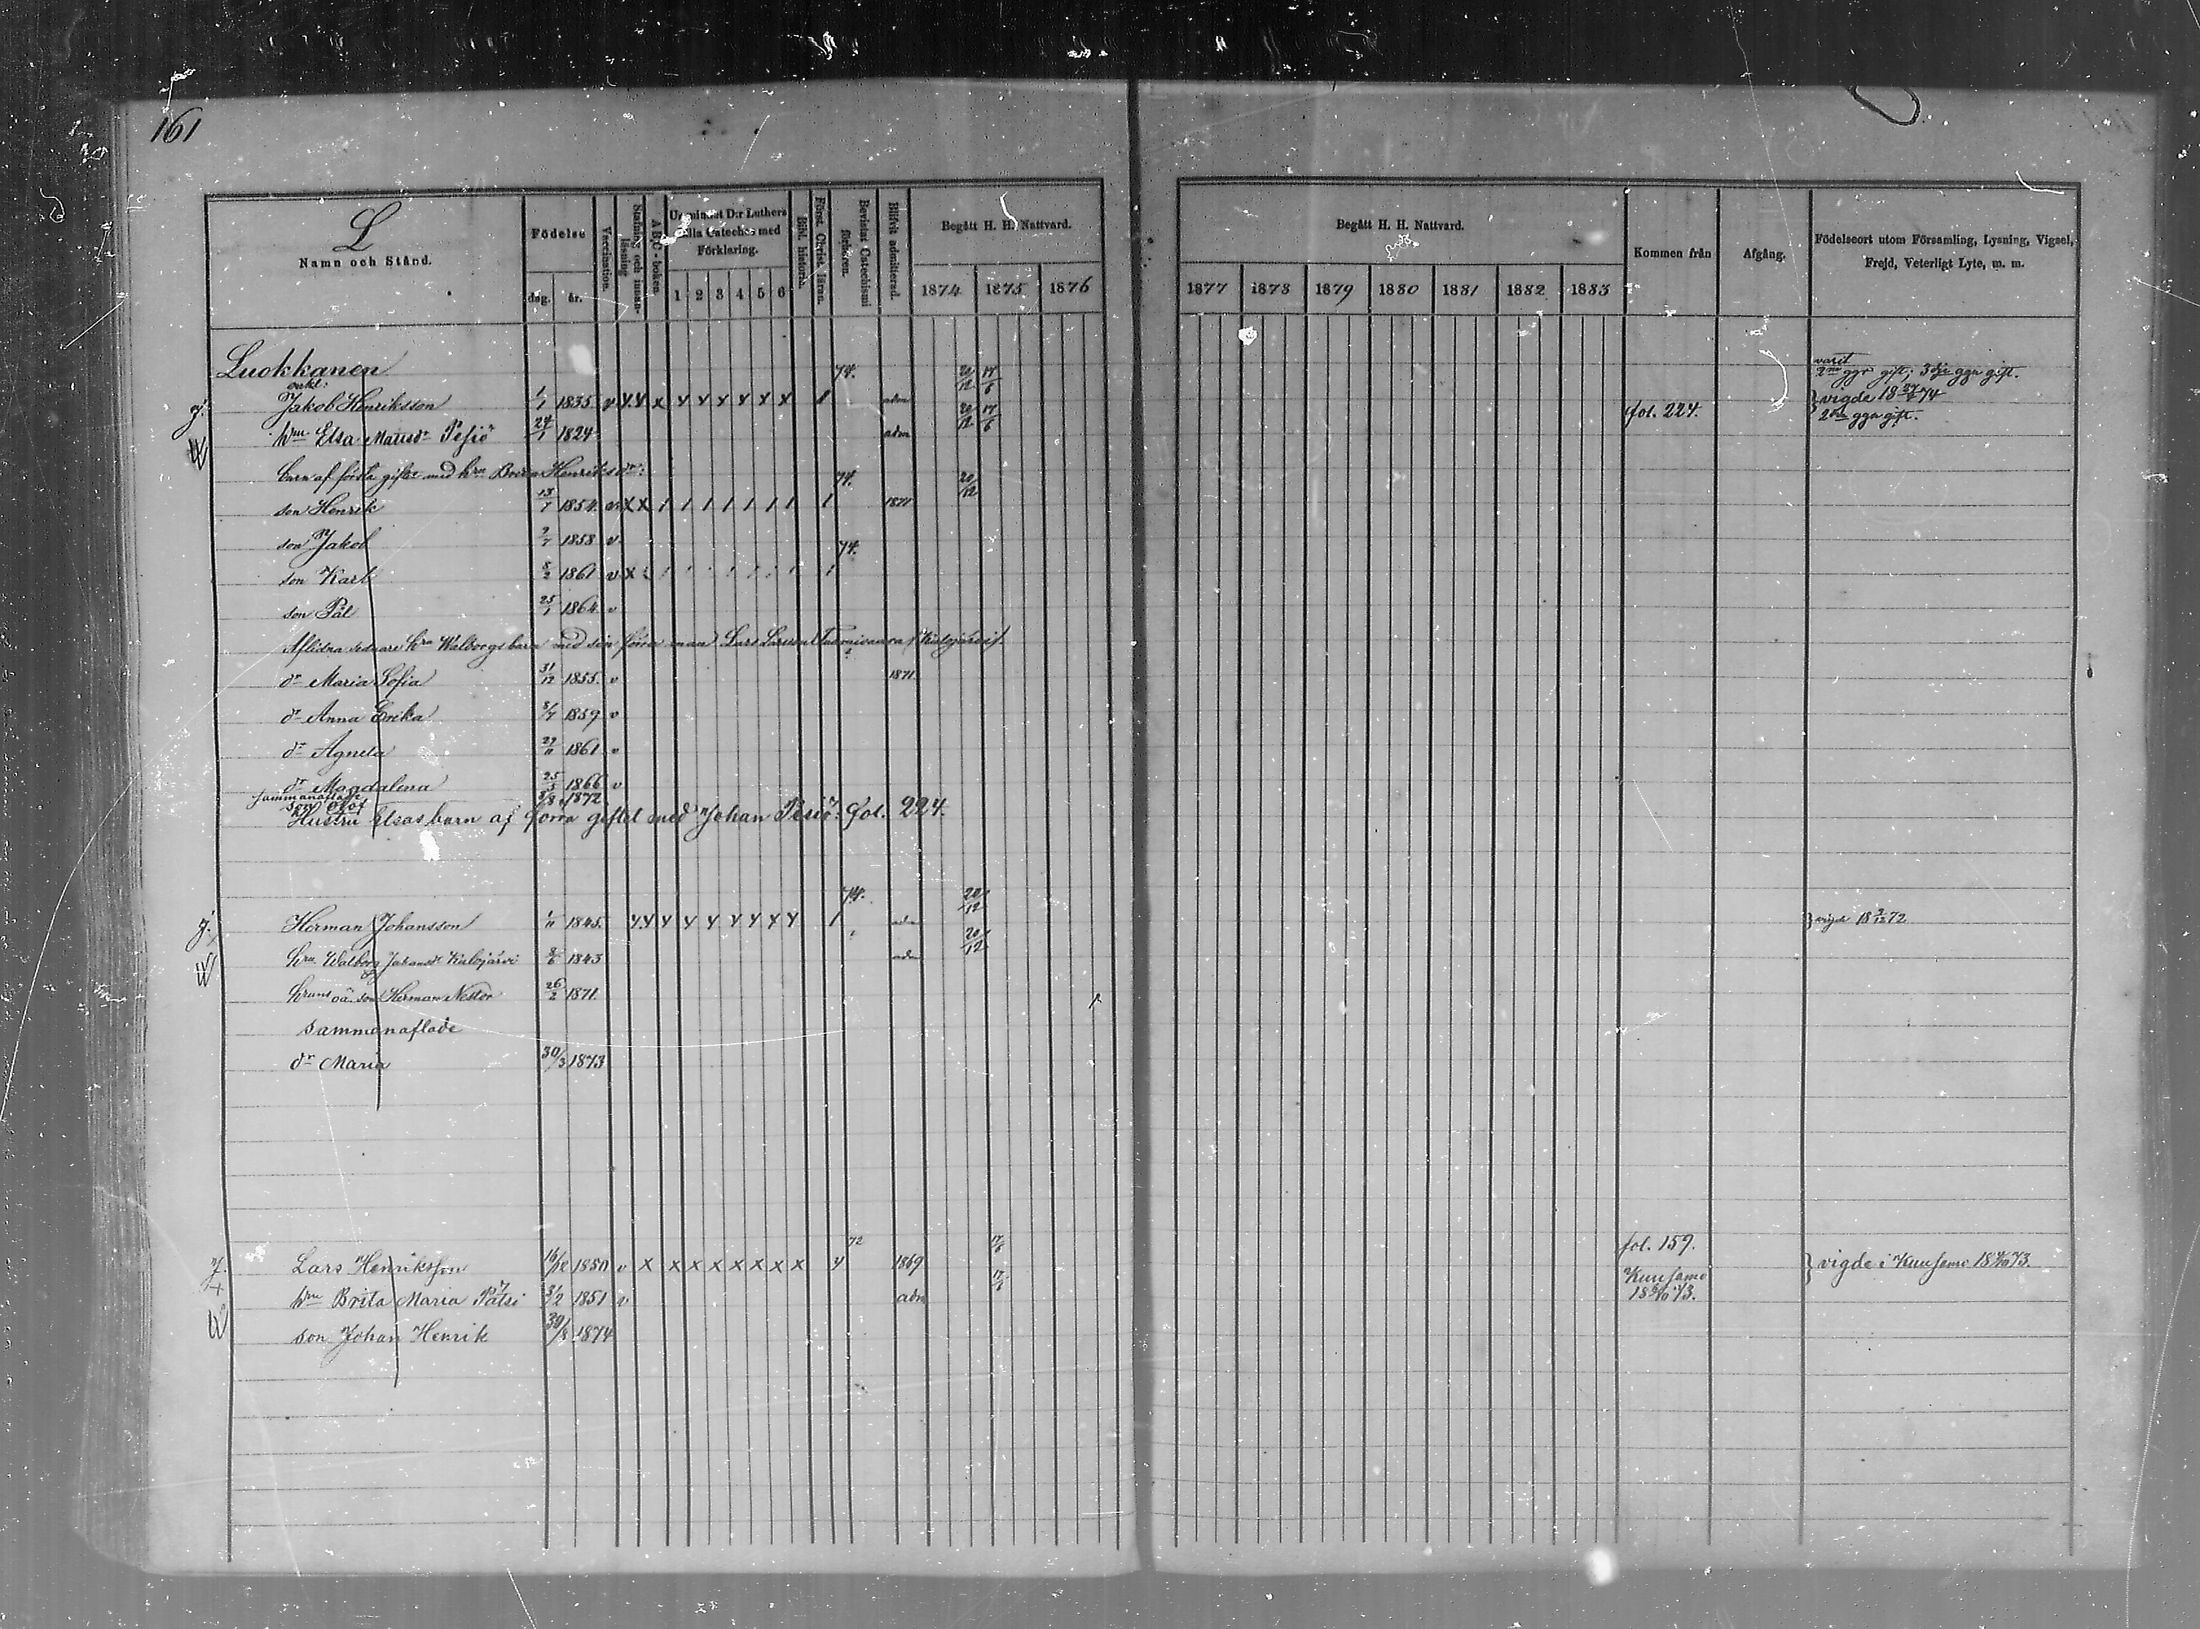 161
L
Namn och Stånd.
Födelse
dag.
år.
Vaccination.
Stafning och innan-läsning
ABC-boken.
Utur minnet D:r Luthers lilla Cateches med Förklaring.
1 2 3 4 5 6
Bibl. historia.
Först. Christ. läran.
Bevistat Catechismi förhören.
Blifvit admitterad.
Begått H. H. Nattvard.
1874 1875 1876
Begått H. H. Nattvard.
1877 1878 1879 1880 1881 1882 1883
Kommen från
Afgång.
Födelseort utom Församling, Lysning, Vigsel, Frejd, Veterligt Lyte, m. m.
Luokkanen
enkl: Jakob Henriksson 1/1 1835 v 74. adm 20/12 17/6 varit 2ne ggr gift; 3dje ggn gift.
hru Elsa Matisdr Pesiö 24/1 1824 adm 20/12 17/6 fol. 224. } vigde 18 /74 2dra ggn gift.
barn af första giftet med hru Brita Henriksdr:
son Henrik 13/7 1854 74. 1871 20/12
son Jakob 2/7 1858 v
son Karl 8/2 1861 v 74.
son Pål 25/1 1864 v
Aflidna senare hru Walborgs barn med sin förra man Lars Larsson Kulojärvi
dr Maria Sofia 31/12 1855. v 1871
dr Anna Erika 3/7 1859 v
dr Agneta 27/11 1861 v
dr Magdalena 25/5 1866 v
sammanaflade son Olof 8/8 1872
Hustru Elsas barn af förra giftet med Johan Pesiö: fol. 224.
Herman Johansson 1/11 1845. 74. adm 20/12 } vigde 18 3/12 72
hru Walborg Johansdr Kulojärvi 8/6 1843 adm 20/12
hruns oä. son Herman Nestor 26/2 1871.
sammanaflade
dr Maria 30/3 1873
Lars Henriksson 16/12 1850 v 72 1869 17/6 fol. 159. } vigde i Kuusamo 18 /10 73.
hru Brita Maria Pätsi 3/2 1851 v adm 17/6 Kuusamo 18 /10 73.
son Johan Henrik 30/8 1874